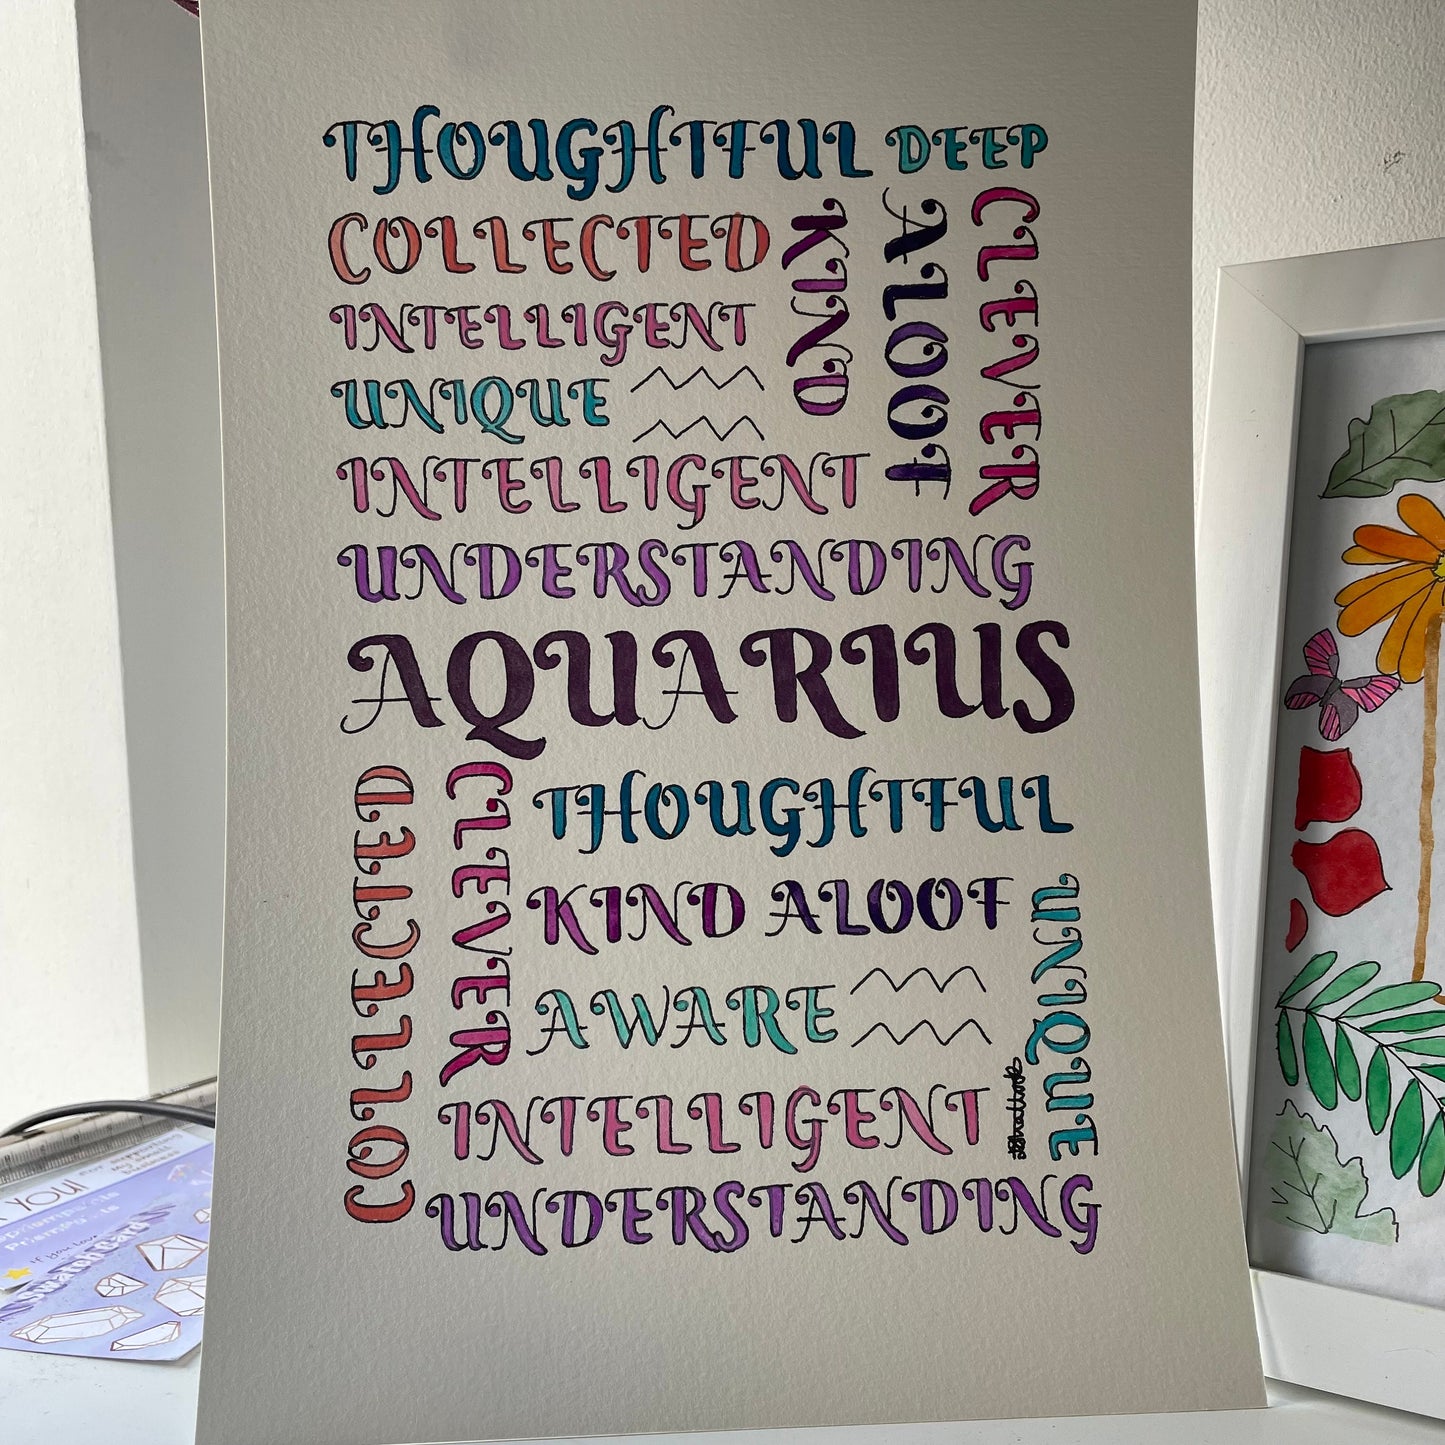 THOUGHTFUL DEEP
COLLECTED
KIND
ALOOF
CLEVER
INTELLIGENT
UNIQUE
INTELLIGENT
UNDERSTANDING
AQUARIUS
COLLECTED
CLEVER
THOUGHTFUL
KIND ALOOF
UNIQUE
AWARE
INTELLIGENT
UNDERSTANDING
YOU!
For supporting
my small
business
if you love